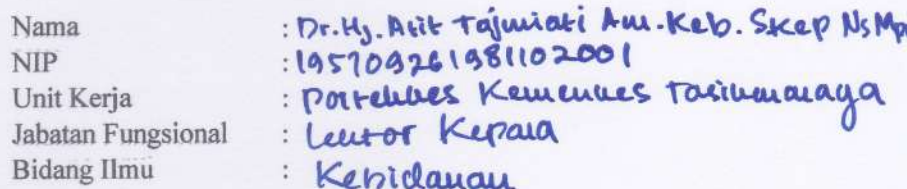 Nama : Dr. Hj. Atit Tajmiati Am.Keb. Skep Ns Mpd
NIP : 195709261981102001
Unit Kerja : Poltekkes Kemenkes Tasikmalaya
Jabatan Fungsional : Lektor Kepala
Bidang Ilmu : Kebidanan